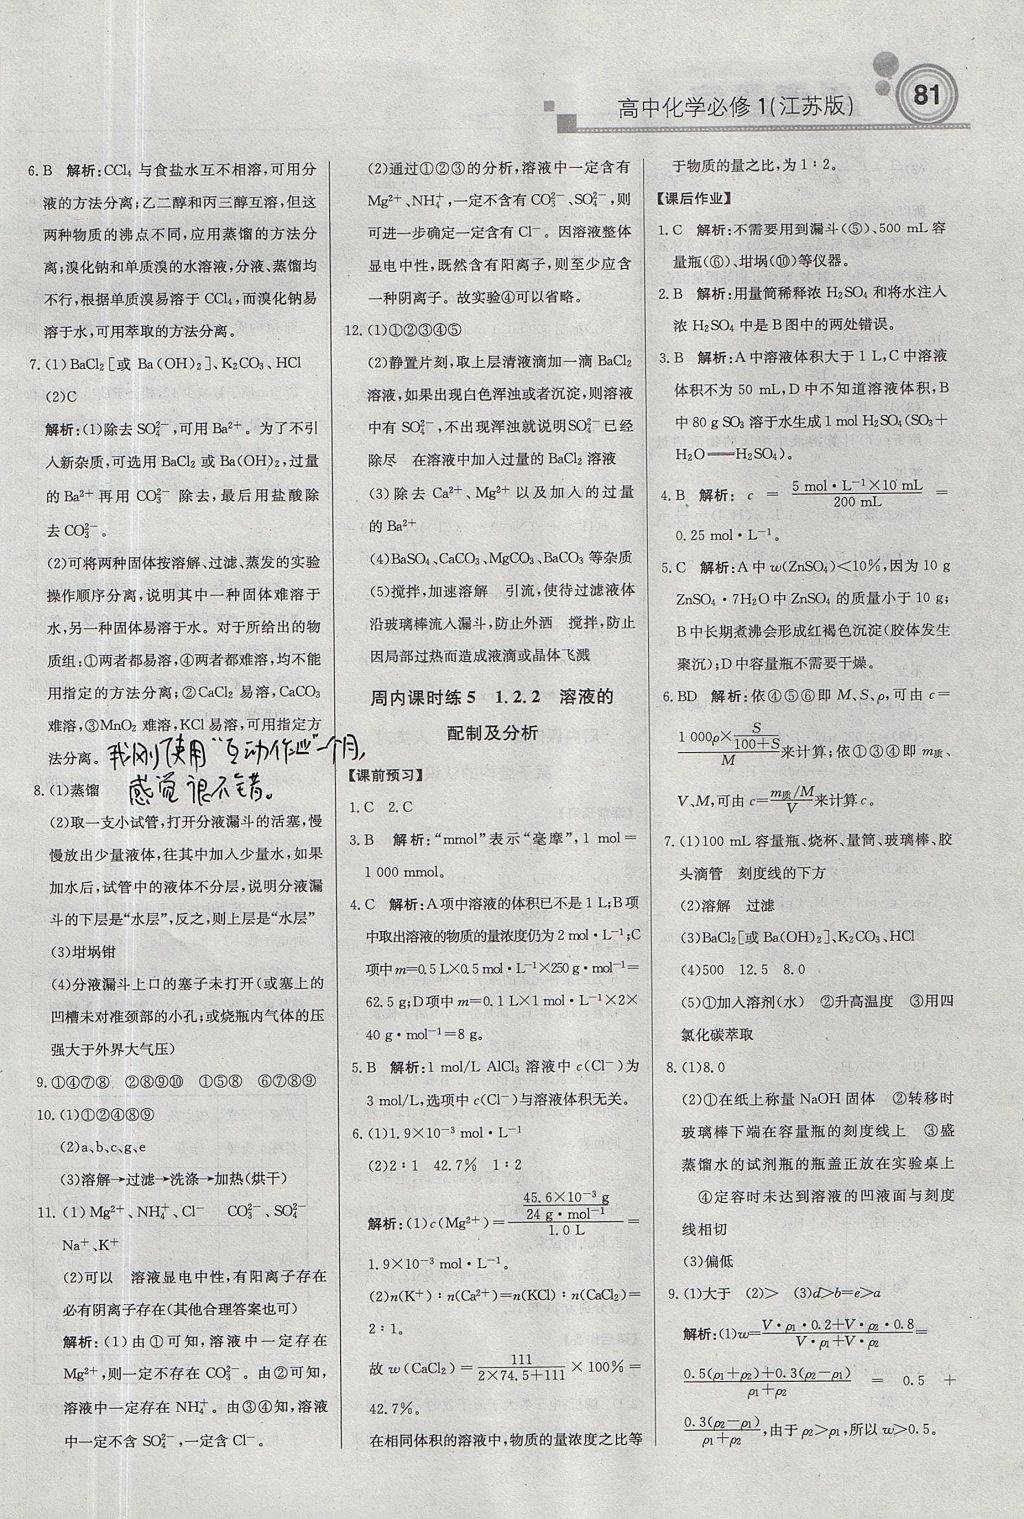 高中化学必修1(江苏版)
81
6.B 解析:CCl₄ 与食盐水互不相溶,可用分
液的方法分离;乙二醇和丙三醇互溶,但这
两种物质的沸点不同,应用蒸馏的方法分
离;溴化钠和单质溴的水溶液,分液、蒸馏均
不行,根据单质溴易溶于 CCl₄,而溴化钠易
溶于水,可用萃取的方法分离。
7.(1)BaCl₂[或 Ba(OH)₂]、K₂CO₃、HCl
(2)C
解析:(1)除去SO₄²⁻,可用Ba²⁺。为了不引
入新杂质,可选用 BaCl₂ 或 Ba(OH)₂,过量
的 Ba²⁺ 再用 CO₃²⁻ 除去,最后用盐酸除
去 CO₃²⁻。
(2)可将两种固体按溶解、过滤、蒸发的实验
操作顺序分离,说明其中一种固体难溶于
水,另一种固体易溶于水。对于所给出的物
质组:①两者都易溶,④两者都难溶,均不能
用指定的方法分离;②CaCl₂ 易溶,CaCO₃
难溶,③MnO₂ 难溶,KCl 易溶,可用指定方
法分离。
我刚使用“互动作业”一个月,
感觉很不错。
8.(1)蒸馏
(2)取一支小试管,打开分液漏斗的活塞,慢
慢放出少量液体,往其中加入少量水,如果
加水后,试管中的液体不分层,说明分液漏
斗的下层是“水层”,反之,则上层是“水层”
(3)坩埚钳
(4)分液漏斗上口的塞子未打开(或塞上的
凹槽未对准颈部的小孔;或烧瓶内气体的压
强大于外界大气压)
9.①④⑦⑧ ②⑧⑨⑩ ①⑤⑧ ⑥⑦⑧⑨
10.(1)①②④⑧⑨
(2)a、b、c、g、e
(3)溶解→过滤→洗涤→加热(烘干)
11.(1)Mg²⁺、NH₄⁺、Cl⁻ CO₃²⁻、SO₄²⁻
Na⁺、K⁺
(2)可以 溶液显电中性,有阳离子存在
必有阴离子存在(其他合理答案也可)
解析:(1)由①可知,溶液中一定存在
Mg²⁺,则一定不存在 CO₃²⁻。由②可知,
溶液中一定存在 NH₄⁺。由③④知,溶液
中一定不含 SO₄²⁻,一定含 Cl⁻。
(2)通过①②③的分析,溶液中一定含有
Mg²⁺、NH₄⁺,一定不含有 CO₃²⁻、SO₄²⁻,则
可进一步确定一定含有 Cl⁻。因溶液整体
显电中性,既然含有阳离子,则一定含有
一种阴离子。故实验④可以省略。
12.(1)①②③④⑤
(2)静置片刻,取上层清液滴加一滴 BaCl₂
溶液,如果出现白色浑浊或者沉淀,则溶液
中有 SO₄²⁻,不出现浑浊就说明SO₄²⁻已经
除尽 在溶液中加入过量的 BaCl₂ 溶液
(3)除去 Ca²⁺、Mg²⁺ 以及加入的过量
的 Ba²⁺
(4)BaSO₄、CaCO₃、MgCO₃、BaCO₃ 等杂质
(5)搅拌,加速溶解 引流,使待过滤液体
沿玻璃棒流入漏斗,防止外洒 搅拌,防止
因局部过热而造成液滴或晶体飞溅
周内课时练5 1.2.2 溶液的
配制及分析
【课前预习】
1.C 2.C
3.B 解析:“mmol”表示“毫摩”,1 mol=
1 000 mmol。
4.C 解析:A项中溶液的体积已不是1 L;B项
中取出溶液的物质的量浓度仍为2 mol·L⁻¹;C
项中m=0.5 L×0.5 mol·L⁻¹×250 g·mol⁻¹=
62.5 g;D项中m=0.1 L×1 mol·L⁻¹×2×
40 g·mol⁻¹=8 g。
5.B 解析:1 mol/L AlCl₃ 溶液中 c(Cl⁻)为
3 mol/L,选项中 c(Cl⁻)与溶液体积无关。
6.(1)1.9×10⁻³ mol·L⁻¹
(2)2∶1 42.7% 1∶2
解析:(1)c(Mg²⁺)=(45.6×10⁻³ g/24 g·mol⁻¹)/1.0 L=
1.9×10⁻³ mol·L⁻¹。
(2)n(K⁺)∶n(Ca²⁺)=n(KCl)∶n(CaCl₂)=
2∶1。
故 w(CaCl₂)=111/(2×74.5+111)×100%=
42.7%。
在相同体积的溶液中,物质的量浓度之比等
于物质的量之比,为1∶2。
【课后作业】
1.C 解析:不需要用到漏斗(⑤)、500 mL容
量瓶(⑥)、坩埚(⑩)等仪器。
2.B 解析:用量筒稀释浓 H₂SO₄ 和将水注入
浓 H₂SO₄ 中是 B 图中的两处错误。
3.B 解析:A中溶液体积大于1 L,C中溶液
体积不为 50 mL,D中不知道溶液体积,B
中 80 g SO₃ 溶于水生成1 mol H₂SO₄(SO₃+
H₂O══H₂SO₄)。
4.B 解析:c=5 mol·L⁻¹×10 mL/200 mL=
0.25 mol·L⁻¹。
5.C 解析:A中 w(ZnSO₄)<10%,因为10 g
ZnSO₄·7H₂O中ZnSO₄ 的质量小于10 g;
B中长期煮沸会形成红褐色沉淀(胶体发生
聚沉);D中容量瓶不需要干燥。
6.BD 解析:依④⑤⑥即 M、S、ρ,可由 c=
(1 000ρ×S/(100+S))/M来计算;依①③④即 m质、
V、M,可由 c=(m质/M)/V来计算 c。
7.(1)100 mL 容量瓶、烧杯、量筒、玻璃棒、胶
头滴管 刻度线的下方
(2)溶解 过滤
(3)BaCl₂[或Ba(OH)₂]、K₂CO₃、HCl
(4)500 12.5 8.0
(5)①加入溶剂(水) ②升高温度 ③用四
氯化碳萃取
8.(1)8.0
(2)①在纸上称量 NaOH 固体 ②转移时
玻璃棒下端在容量瓶的刻度线上 ③盛
蒸馏水的试剂瓶的瓶盖正放在实验桌上
④定容时未达到溶液的凹液面与刻度
线相切
(3)偏低
9.(1)大于 (2)> (3)d>b=e>a
解析:(1)w=(V·ρ₁·0.2+V·ρ₂·0.8)/(V·ρ₁+V·ρ₂)=
(0.5(ρ₁+ρ₂)+0.3(ρ₂−ρ₁))/(ρ₁+ρ₂) = 0.5 +
0.3(ρ₂−ρ₁)/(ρ₁+ρ₂),由于ρ₂>ρ₁,所以 w>0.5。